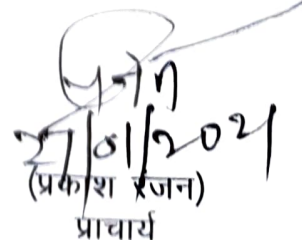 27/01/2021
(प्रकाश रंजन)
प्राचार्य